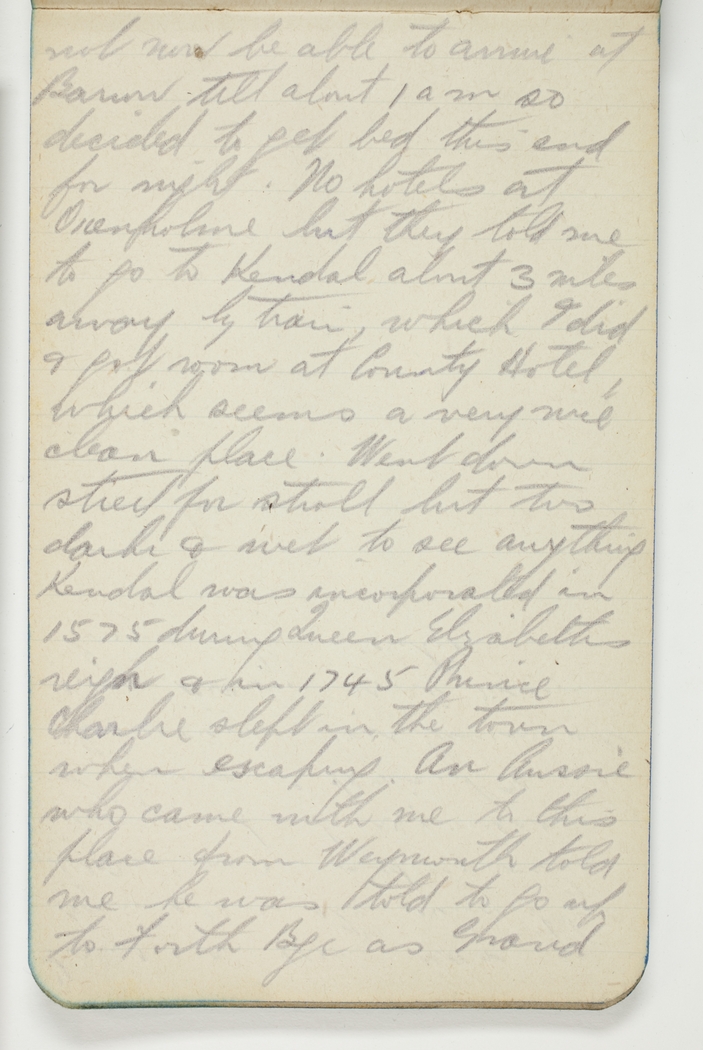 not now be able to arrive at
Barrow till about 1 a m so
decided to get bed this end
for night. No hotels at
Oxenholme but they told me
to go to Kendal about 3 miles
away by train, which I did
& got room at County Hotel,
which seems a very nice
clean place. Went down
street for stroll but too
dark & wet to see anything
Kendal was incorporated in
1575 during Queen Elizabeths
reign & in 1745 Prince
Charlie slept in the town
when escaping. An Aussie
who came with me to this
place from Weymouth told
me he was told to go up
to Forth Bge as Grand